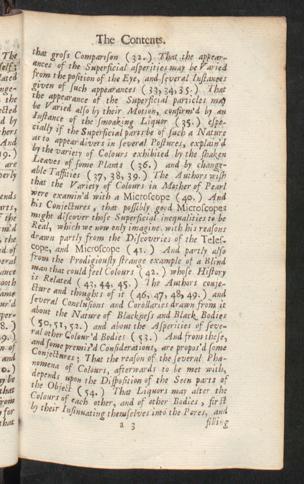 The Contents.
that gross Comparison (32.) That the appear-
ances of the Superficial asperities may be Varied
from the position of the Eye, and several Instances
given of such appearances (33, 34, 35.) That
the appearance of the Superficial particles may
be Varied also by their Motion, confirm'd by an
Instance of the smoaking Liquor (35.) espe-
cially if the Superficial parts be of such a Nature
as to appear divers in several Postures, explain'd
by the variety of Colours exhibited by the shaken
Leaves of some Plants (36.) and by change-
able Taffities (37, 38, 39.) The Authors wish
that the Variety of Colours in Mother of Pearl
were examin'd with a Microscope (40.) And
his Conjectures, that possibly good Microscopes
might discover those Superficial inequalities to be
Real, which we now only imagine, with his reasons
drawn partly from the Discoveries of the Teles-
cope, and Microscope (41.) And partly also
from the Prodigiously strange example of a Blind
man that could feel Colours (42.) whose History
is Related (43, 44, 45.) The Authors conje-
cture and thoughts of it (46, 47, 48, 49.) and
several Conclusions and Corollaries drawn from it
about the Nature of Blackness and Black Bodies
(50, 51, 52.) and about the Asperities of seve-
ral other Colour'd Bodies (53.) And from these,
and some premis'd Considerations, are propos'd some
Conjectures; That the reason of the several Phæ-
nomena of Colours, afterwards to be met with,
depends upon the Disposition of the Seen parts of
the Object (54.) That Liquors may alter the
Colours of each other, and of other Bodies, first
by their Insinuating themselves into the Pores, and
a 3 filling